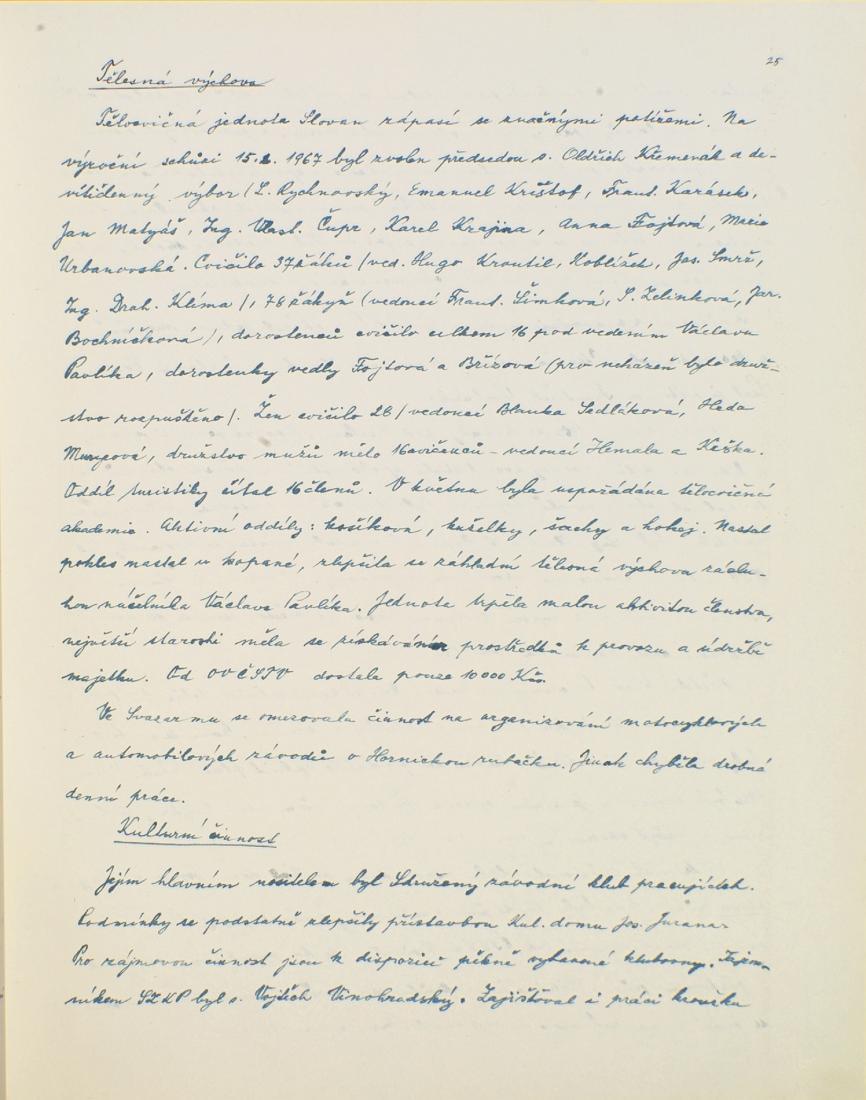 25
Tělesná výchova
Tělocvičná jednota Slovan zápasí se značnými potížemi. Na
výroční schůzi 15.2. 1967 byl zvolen předsedou s. Oldřich Křemenák a de-
vítičlenný výbor (L. Rychnovský, Emanuel Krištof, Frant. Karásek,
Jan Matyáš, Ing. Vlast. Čupr, Karel Krajina, Anna Fojtová, Marie
Urbanovská. Cvičilo 37 žáků /ved. Hugo Kroutil, Koblížek, Jos. Smrž,
Ing. Drah. Klíma /, 78 žákyň (vedoucí Frant. Šimková, S. Zelinková, Jar.
Bochníčková), dorostenců cvičilo celkem 16 pod vedením Václava
Pavlíka, dorostenky vedly Fojtová a Břízová (pro neházeň bylo druž-
stvo rozpuštěno/. Žen cvičilo 28 /vedoucí Blanka Sedláková, Heda
družstvo mužů mělo 16 cvičenců - vedoucí Hemala a Kežka.
Oddíl turistiky čítal 16 členů. V květnu byla uspořádána tělocvičná
akademie. Aktivní oddíly: košíková, kuželky, šachy a hokej. Nastal
pokles nastal u kopané, zlepšila se základní tělesná výchova záslu-
hou náčelníka Václava Pavlíka. Jednota trpěla malou aktivitou členstva,
největší starosti měla se získáváním prostředků k provozu a údržbě
majetku. Od OV ČSTV dostala pouze 10 000 Kčs.
Ve Svazarmu se omezovala činnost na organizování motocyklových
a automobilových závodů o Hornickou rubačku. Jinak chyběla drobná
denní práce.
Kulturní činnost
Jejím hlavním nositelem byl Sdružený závodní klub pracujících.
Podmínky se podstatně zlepšily přístavbou Kul. domu Jos. Jurana.
Pro zájmovou činnost jsou k dispozici pěkně vybavené klubovny. Tajem-
níkem SZKP byl s. Vojtěch Vinohradský. Zajišťoval i práci kroužku